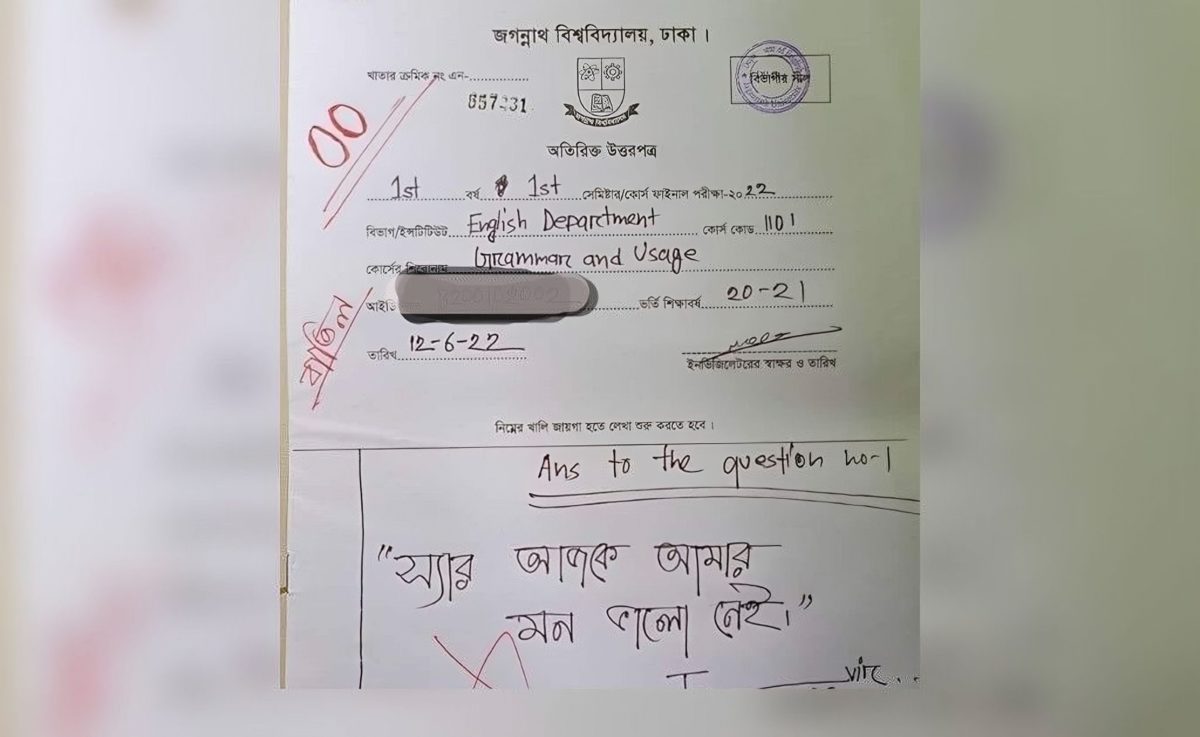 জগন্নাথ বিশ্ববিদ্যালয়, ঢাকা।
খাতার ক্রমিক নং এন-
বিভাগীয় সীল
00
অতিরিক্ত উত্তরপত্র
1st বর্ষ 1st সেমিষ্টার/কোর্স ফাইনাল পরীক্ষা-২০২২
বিভাগ/ইন্সটিটিউট English Department কোর্স কোড 1101
কোর্সের শিরোনাম Grammar and Usage
আইডি ভর্তি শিক্ষাবর্ষ 20-21
বাতিল
তারিখ 12-6-22
ইনভিজিলেটরের স্বাক্ষর ও তারিখ
নিম্নের খালি জায়গা হতে লেখা শুরু করতে হবে।
Ans to the question no-1
"স্যার আজকে আমার
মন ভালো নেই।"